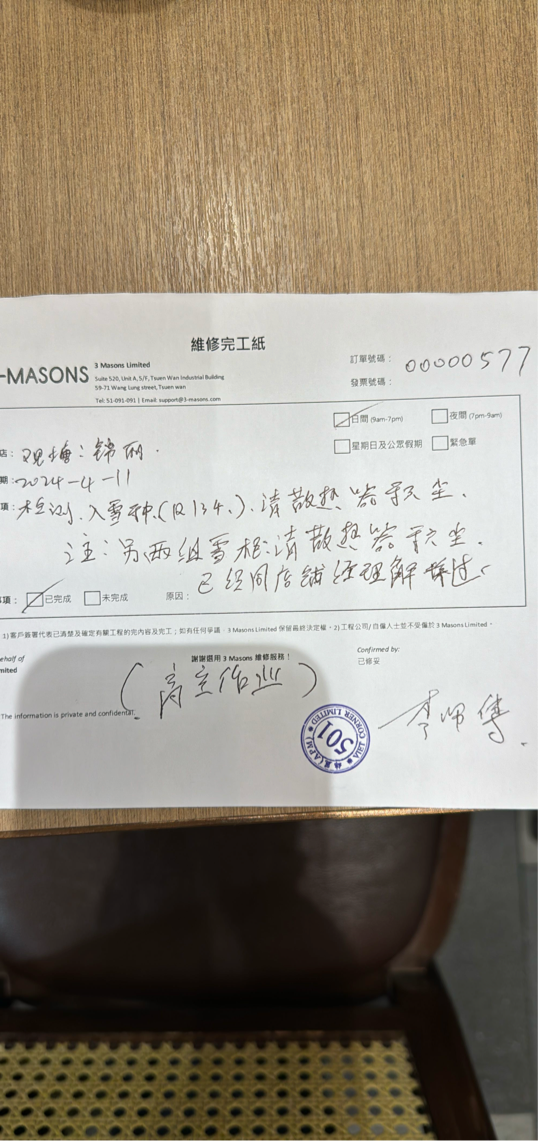 維修完工紙
-MASONS
3 Masons Limited
Suite 520, Unit A, 5/F, Tsuen Wan Industrial Building
59-71 Wang Lung street, Tsuen wan
Tel: 51-091-091 | Email: support@3-masons.com
訂單號碼： 00000577
發票號碼：
日間 (9am-7pm)
夜間 (7pm-9am)
星期日及公眾假期
緊急單
店：观塘：锦丽.
期：2024-4-11
項：检测.入雪种.(R134.).清散热器灰尘.
注：另两组雪柜清散热器灰尘.
已经同店铺经理解释过
事項： 已完成 未完成 原因：
1)客戶簽署代表已清楚及確定有關工程的完內容及完工；如有任何爭議，3 Masons Limited 保留最終決定權。2)工程公司/自僱人士並不受僱於 3 Masons Limited。
ehalf of
mited
謝謝選用 3 Masons 維修服務！
Confirmed by:
已修妥
(高空作业)
The information is private and confidental.
CORNER LIMITED
(APM)
501
李师傅